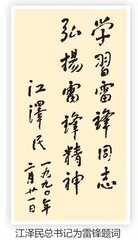 学習雷锋同志
弘揚雷锋精神
江泽民
一九九〇年
二月廿一日
江泽民总书记为雷锋题词